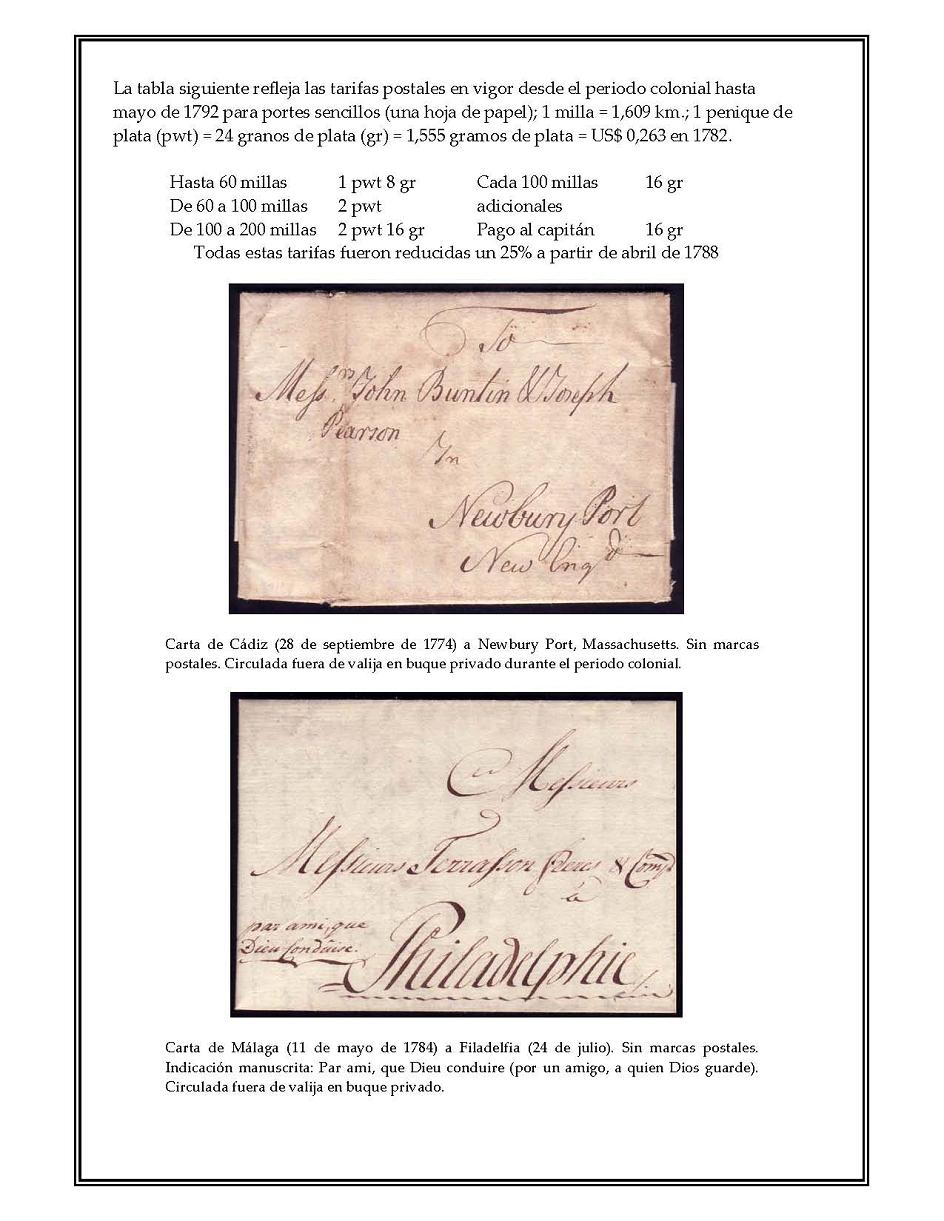 La tabla siguiente refleja las tarifas postales en vigor desde el periodo colonial hasta
mayo de 1792 para portes sencillos (una hoja de papel); 1 milla = 1,609 km.; 1 penique de
plata (pwt) = 24 granos de plata (gr) = 1,555 gramos de plata = US$ 0,263 en 1782.
Hasta 60 millas 1 pwt 8 gr Cada 100 millas 16 gr
De 60 a 100 millas 2 pwt adicionales
De 100 a 200 millas 2 pwt 16 gr Pago al capitán 16 gr
Todas estas tarifas fueron reducidas un 25% a partir de abril de 1788
To
Messrs John Buntin & Joseph
Pearson
In
Newbury Port
New Engd
Carta de Cádiz (28 de septiembre de 1774) a Newbury Port, Massachusetts. Sin marcas
postales. Circulada fuera de valija en buque privado durante el periodo colonial.
Messieurs
Messieurs Terrasson freres & Compe
à
par ami, que
Dieu Conduise.
Philadelphie
Carta de Málaga (11 de mayo de 1784) a Filadelfia (24 de julio). Sin marcas postales.
Indicación manuscrita: Par ami, que Dieu conduire (por un amigo, a quien Dios guarde).
Circulada fuera de valija en buque privado.